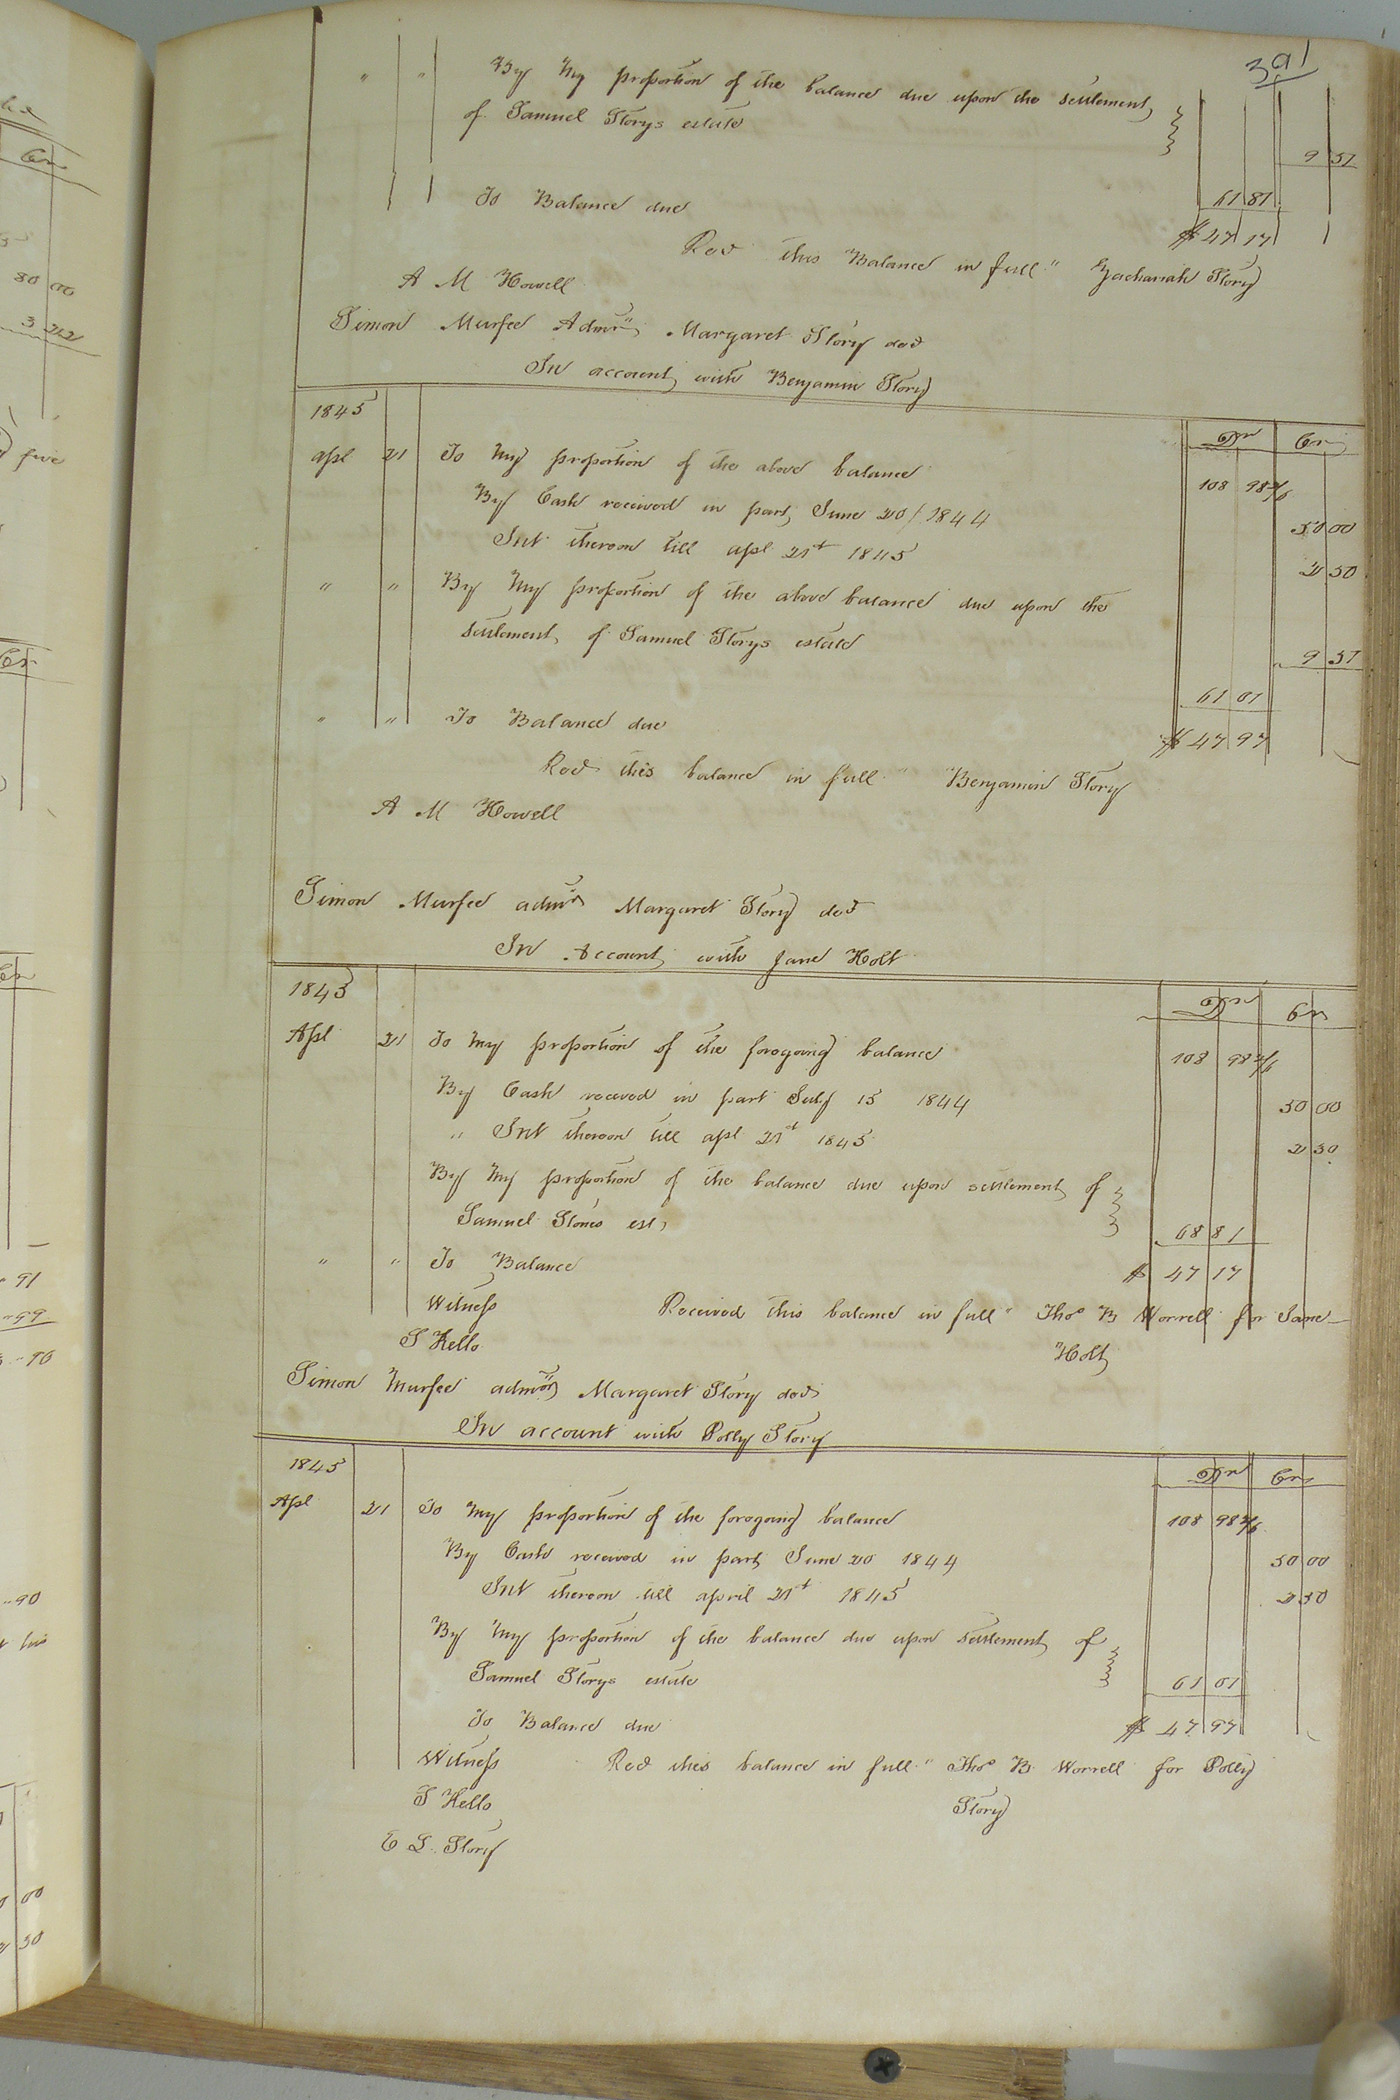 391
" " By My proportion of the balance due upon the settlement
of Samuel Storys estate
9 51
To Balance due 61 81
$ 47 17
Recd this Balance in full " Zachariah Story
A M Howell
Simon Murfee Admr Margaret Story decd
In account with Benjamin Story
1845 Dr Cr
Apl 21 To My proportion of the above balance 108 98 2/6
By Cash received in part June 20/1844 50 00
Int thereon till apl 21st 1845 2 50
" " By My proportion of the above balance due upon the
settlement of Samuel Storys estate 9 51
61 01
" " To Balance due
$ 47 97
Recd this balance in full " Benjamin Story
A M Howell
Simon Murfee admr Margaret Story decd
In Account with Jane Holt
1845 Dr Cr
Apl 21 To My proportion of the foregoing balance 108 98 2/6
By Cash received in part July 15 1844 50 00
" Int thereon till apl 21st 1845 2 30
By My proportion of the balance due upon settlement of
Samuel Stories est, 68 81
" " To Balance $ 47 17
Witness Received this balance in full " Thos B Worrell for Jane
S Kello Holt
Simon Murfee admor Margaret Story decd
In account with Polly Story
1845 Dr Cr
Apl 21 To My proportion of the foregoing balance 108 98 2/6
By Cash received in part June 20 1844 50 00
Int thereon till april 21st 1845 2 50
By My proportion of the balance due upon settlement of
Samuel Storys estate 61 01
To Balance due $ 47 97
Witness Recd this balance in full " Thos B Worrell for Polly
S Kello Story
E L Story